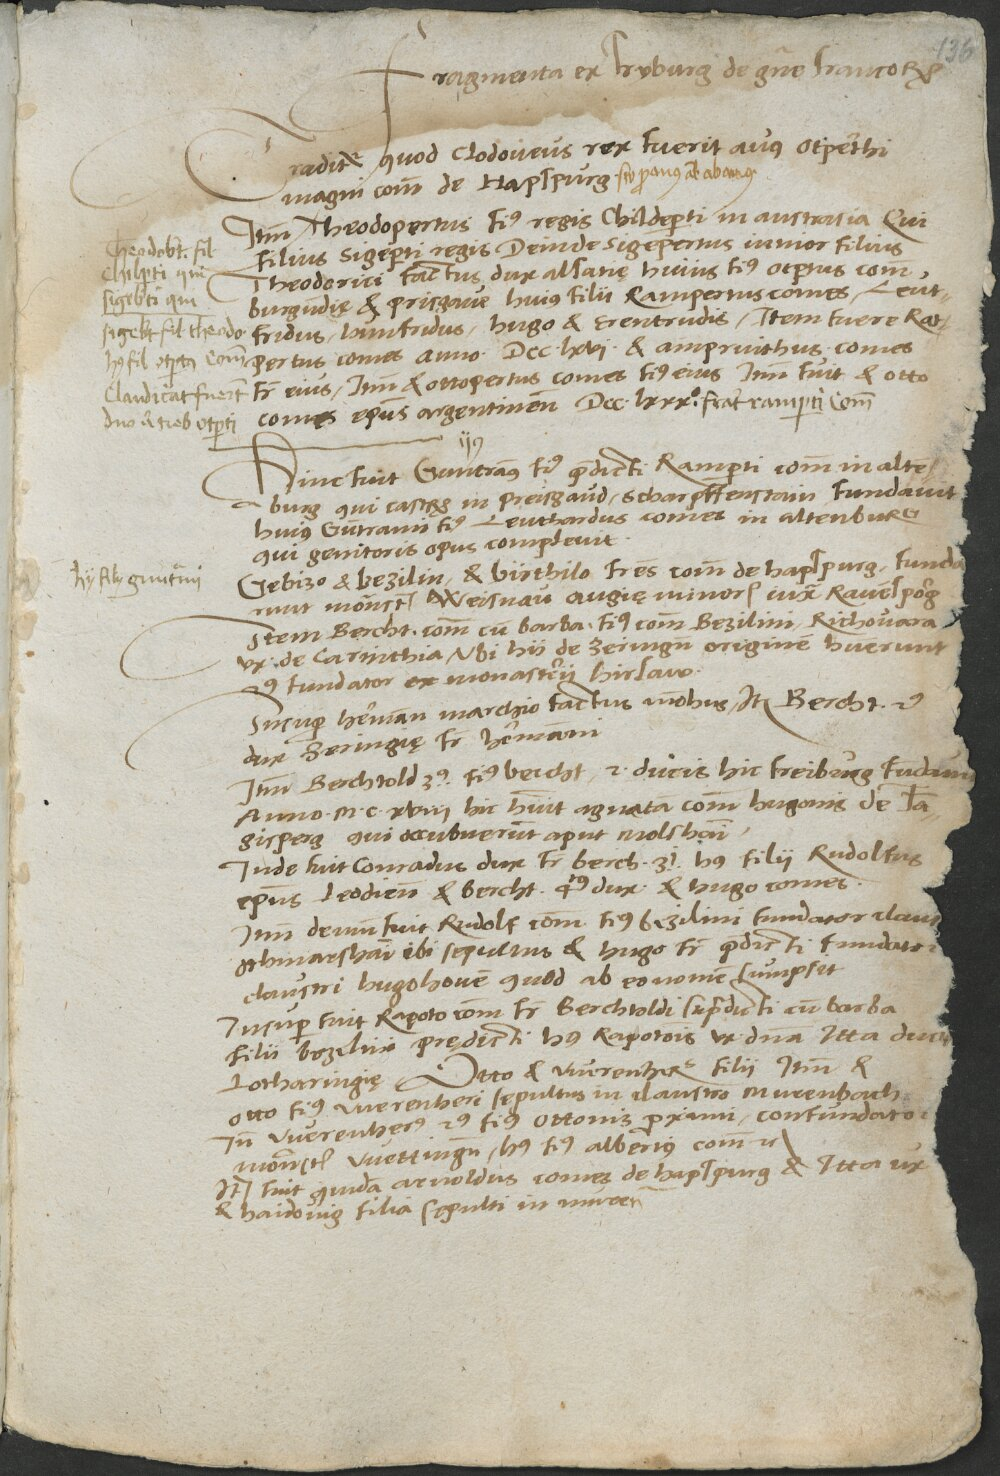 136
Fragmenta ex Fryburg de gñe Francoꝝ
Tradit̃ quod Clodoveus rex fuerit avꝰ otperthi
magni com̃ de Hapſpurg
Itm̃ Theodopertus fiꝰ regis Childep̃ti in austrasia Qui
filius sigep̃ti regis Deinde sigepertus iunior filius
Theodorici factus dux alsatię huius fiꝰ otp̃tus com̃,
burgundię & prisgaue huius filii Rampertus comes, Leut-
fridus, luitfridus, hugo & Erentrudis, Item fuere Rat-
pertus comes anno. Dcc. lxvi. & ampruithus comes
fr̃ eius, Itm̃ & ottopertus comes fiꝰ eius Itm̃ fuit & otto
comes ep̃us argentineñ Dcc. lxxxᵒ. frat̃ramp̃ti Com̃
Theodob̃t fil
Chilp̃ti qui
sigeb̃ti qui
sigeb̃t fil theodo
hꝰ fil otp̃tꝰ Com̃
Hinc fuit Guntrãꝰ fiꝰ p̃dicti Ramp̃ti com̃ in alte
burg qui castrũ in preisgaud, scharpffenstain fundavit
huiꝰ Guntrami fiꝰ Leuthardus comes in altenburg
qui genitoris opus complevit.
hij filij guntrãni
Gebizo & bezilin, & birthilo fr̃es com̃ de hapſpurg, funda
runt monst̃ Weisnau augię minorꝭ iux̃ Ravẽſpõg
Item Bercht. com̃ cũ barba. fiꝰ com̃ Bezilini, Richovara
vx. de Carinthia, Vbi hii de Zeringñ originẽ hũerunt
ꝰ fundator ex monasterii hirsaw.
Insup̃ her̃man marchio factus mõhus, Itꝫ Bercht. 2ꝰ
dux Zeringię fr̃ her̃mãni
Itm̃ Berchtold 3ꝰ. fiꝰ bercht, 2. ducis hic freiburg fũdavit
Anno. M. c. xviii hic hũit agnatã com̃ hugonis de Ta-
gisperg qui occubuerũt aput molshãi,
Inde fuit Conradus dux fr̃ berch. 3i. hꝰ filii Rudolfus
ep̃us Leodieñ & bercht. 4ꝰ dux. & hugo comes.
Itm̃ demũ fuit Rudolf com̃. fiꝰ bezilini fundator claus
othmarshãi ibi sepultus & hugo fr̃ p̃dicti fundator
claustri hugshovẽ quod ab eo nomẽ sumpsit
Insup̃ fuit Rapoto com̃ fr̃ Berchtoldi sup̃dicti cũ barba
filii bezilini prędicti hꝰ Rapotois vx. dñã Itta ducis
Lotharingię Otto & Vverenher filii Itm̃ &
otto fiꝰ Vverenheri sepultus in claustro Murenbach
Itm̃ Vverenherꝰ 2ꝰ fiꝰ Ottonis p̃ximi, confundator
monst̃ Vvettingñ, hꝰ fiꝰ albertꝰ com̃
Itꝫ fuit quidã arnoldus comes de hapſpurg & Itta vx
& haidovig filia sepulti in muren